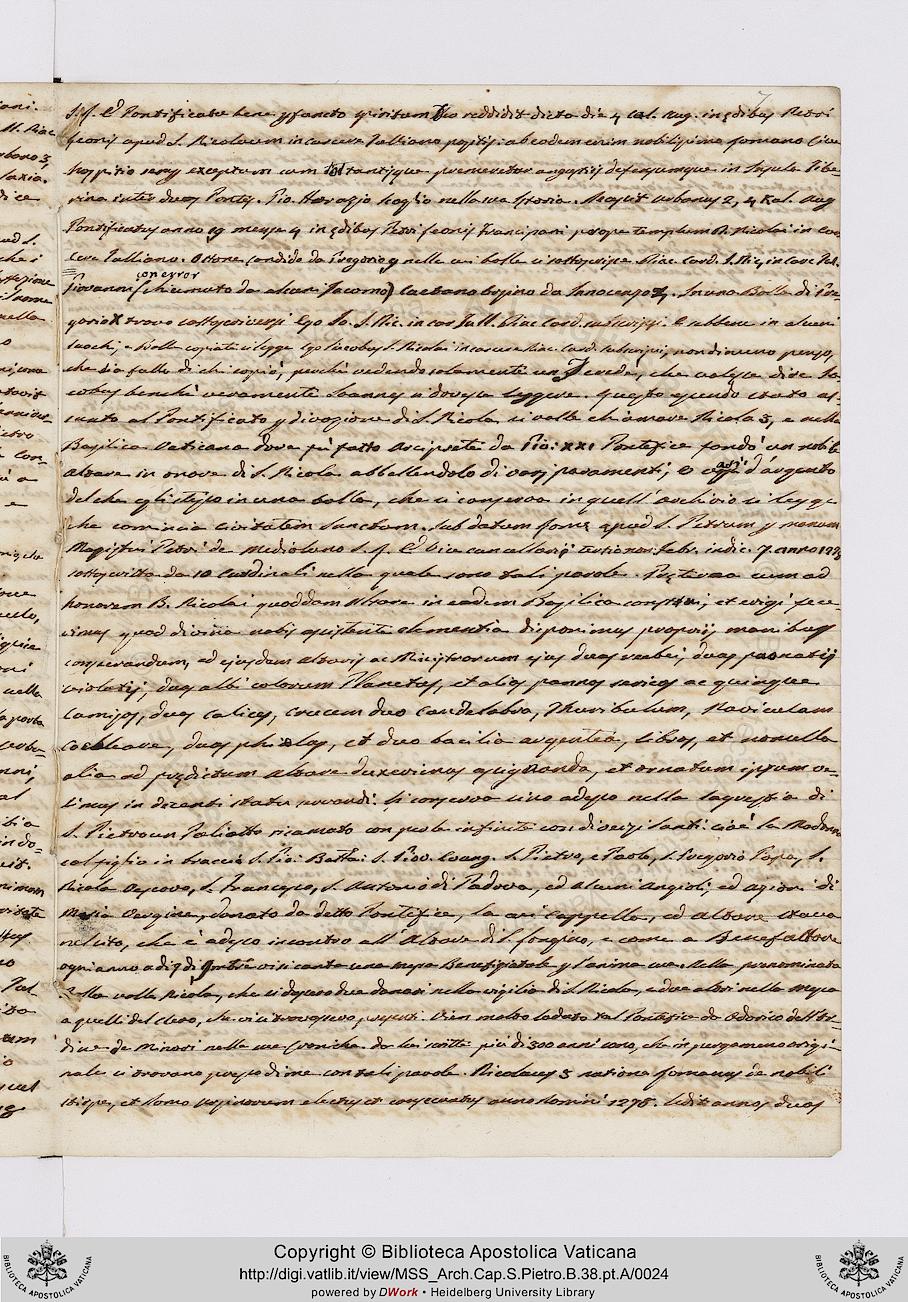 7
S. J. E Pontificatu bene perfuncto spiritum Deo reddidit dicto die 4 Cal. Aug. in ędibus Petri
Leonis apud S. Nicolaum in carcere Tulliano positis: ab eodem enim nobilissimo Romano Cive
hospitio semper exceptum cum tot tantisque premeretur angustijs defessumque in Insula Tibe-
rina inter duos Pontes. Pio. Horazio Scoglio nella sua Istoria. Decessit Urbanus 2, 4 Kal. Aug
Pontificatus anno mense 4 in ędibus Petri Leonis Francipani prope templum B. Nicolai in car
cere Tulliano. Ottone Candido da Gregorio nelle cui bolle si sottoscrive Diac. Card. S. Nic. in Carc. Tul.
con error
Giovanni (chiamato da alcuni Jacomo) Caetano Orsino da Innocenzo 4. In una Bolla di Gre-
gorio X trovo sottoscriversi Ego Jo. S. Nic. in car. Tull. Diac. Card. subscripsi. E sebbene in alcuni
luochi, e Bolle copiate si legge Ego Jacobus S. Nicolai in carcere Diac. Card. subscripsi, nondimeno penso,
che sia fallo di chi copiò, perchè vedendo solamente un J crede, che volesse dire Ja-
cobus benchè veramente Joannes si dovesse leggere. Questo essendo stato as-
sunto al Pontificato per divozione di S. Nicola si volle chiamare Nicola 3, e nella
Basilica Vaticana dove fu fatto Arciprete da Gio: XXI Pontefice fondò un nobil
Altare in onore di S. Nicola abbellendolo di varj paramenti, e d'argento
del che egli stesso in una bolla, che si conserva in quell'archivio si legge
che comincia Civitatem Sanctam. Sub datum Romę apud S. Petrum per manum
Magistri Petri de Mediolano S. R. E Vice cancellarij tertio nonas febr. indic. 7 anno
sottoscritta da 10 Cardinali nella quale sono tali parole. Pręterea cum ad
honorem B. Nicolai quoddam Altare in eadem Basilica construi, et erigi fece-
rimus quod divina nobis assistente clementia disponimus proprijs manibus
consecrandum, ad ejusdem Altaris ac Ministrorum ejus duas rubei, duas paonatij
violatij, duas albi colorum Planetas, et alios pannos sericos ac quinque
Camisos, duos calices, Crucem duo Candelabra, Thuribulum, Naviculam
Cocleare, duas phialas, et duo bacilia argentea, libros, et nonnulla
alia ad prędictum Altare duxerimus assignanda, et ornatum ipsum ve-
limus in decenti statu Si conserva sino adesso nella Sagrestia di
S. Pietro un Paliotto ricamato con perle infinite con diversi Santi: cioè la Madonna
col figlio in braccio S. Gio: Batta: S. Giov. Evang. S. Pietro, e Paolo, S. Gregorio Papa, S.
Nicola Vescovo, S. Francesco, S. Antonio di Padova, ed alcuni Angioli; ed azioni di
Maria Vergine, donato da detto Pontefice, la cui cappella, ed Altare stava
nel sito, che è adesso incontro all'Altare di S. Gregorio, e come a Benefattore
ogni anno a di vi si canta una messa Benefiziatale per l'anima sua. Nella prenominata
Bolla volle Nicola, che si dassero due danari nella vigilia di S. Nicola, e due altri nella messa
a quelli del clero, che vi si trovassero presenti. Vien molto lodato tal Pontefice da Odorico dell'Or-
dine de Minori nella sua Cronicha da lui scritta più di 300 anni sono, che in pergameno origi-
nale si trovano presso di me con tali parole. Nicolaus 3 natione Romanus de nobili
stirpe, et domo Ursinorum electus et consecratus anno Domini 1278. Sedit annos duos
Copyright © Biblioteca Apostolica Vaticana
http://digi.vatlib.it/view/MSS_Arch.Cap.S.Pietro.B.38.pt.A/0024
powered by DWork • Heidelberg University Library
BIBLIOTECA APOSTOLICA VATICANA
BIBLIOTECA APOSTOLICA VATICANA